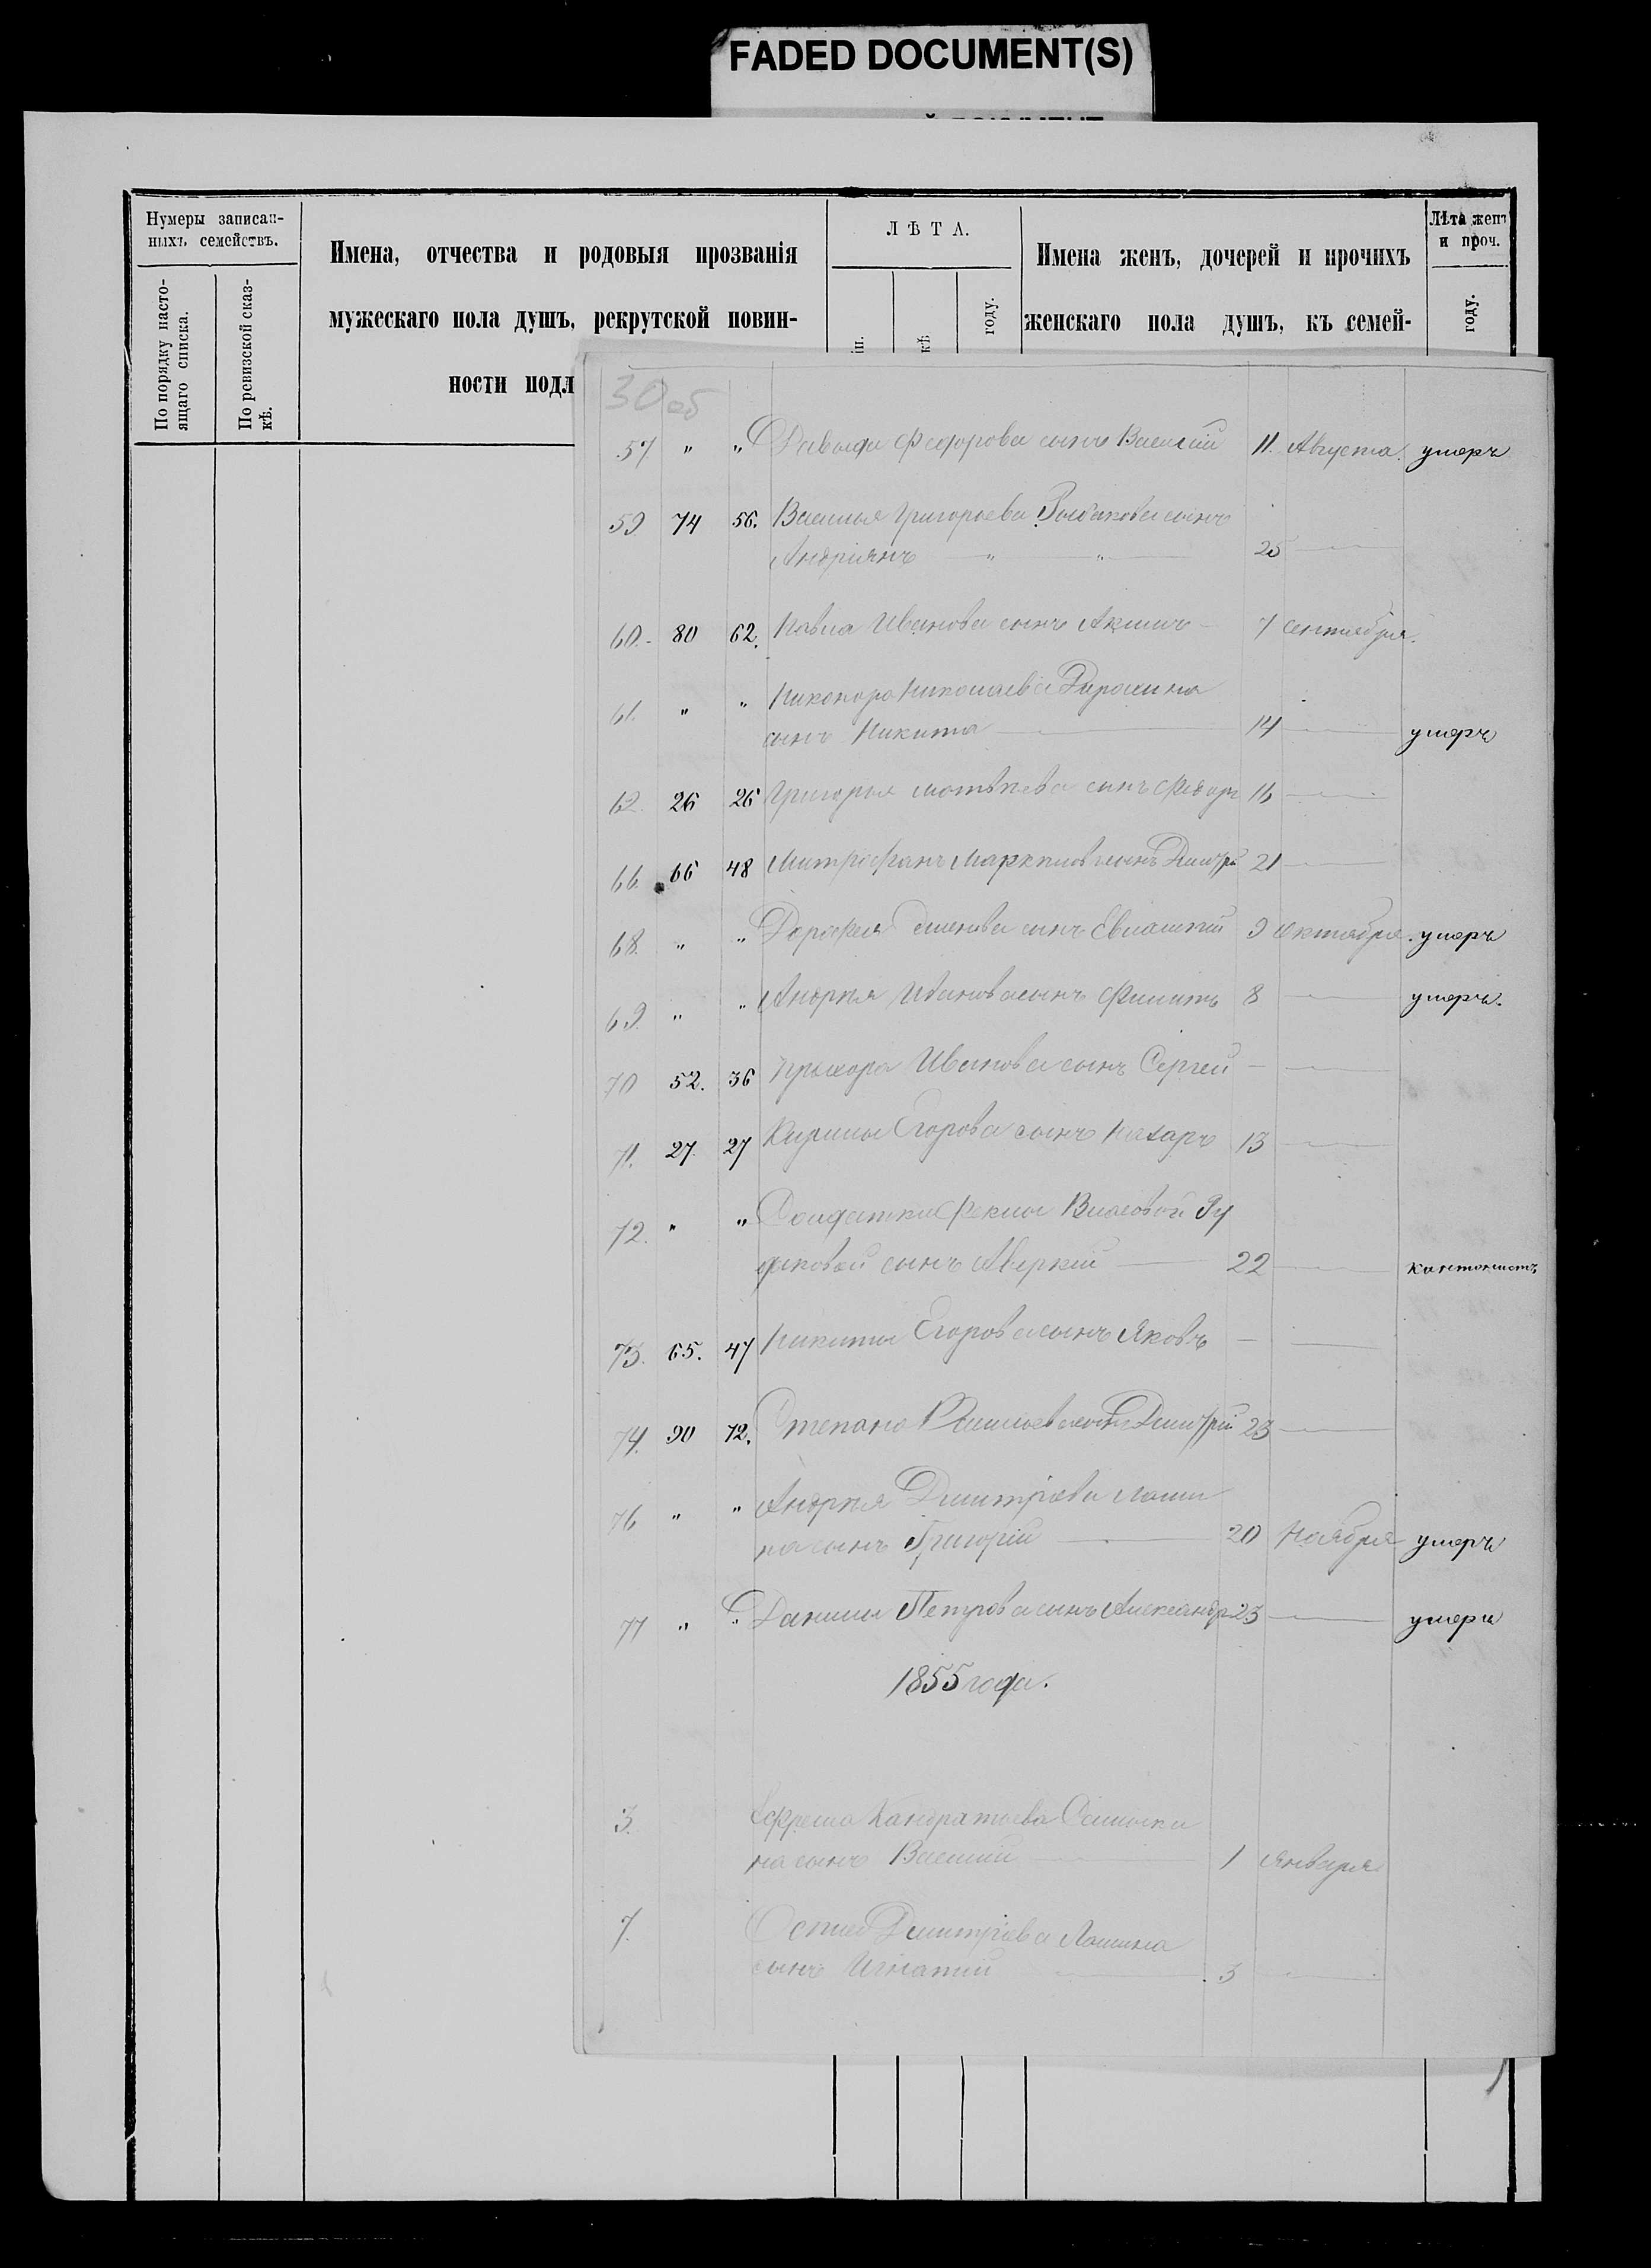 FADED DOCUMENT(S)
Нумеры записан-
ныхъ семействъ.
По порядку насто-
ящаго списка.
По ревизской сказ-
кѣ.
Имена, отчества и родовыя прозванія
мужескаго пола душъ, рекрутской повин-
ности подл
ЛѢТА.
кѣ
году.
Имена женъ, дочерей и прочихъ
женскаго пола душъ, къ семей-
Лѣта женъ
и проч.
году.
30 об
57 " " Давыда Федорова сынъ Василій 11. Августа. умеръ
59 74 56. Василья Григорьева Рыбакова сынъ
Андріянъ " " 25
60. 80 62. Павла Иванова сынъ Акимъ 7 Сентября.
61. " " Никонора Николаева
сынъ Никита 14 умеръ
62. 26 26 Григорья Матвѣева сынъ Федоръ 16
66. 66 48 Митрофана сынъ Дмитрій 21
68. " " Дорофея Семенова сынъ Евлампій 9 Октября. умеръ
69. " " Андрѣя Иванова сынъ Филипъ 8 умеръ.
70 52. 36 Прохора Иванова сынъ Сергей
71. 27. 27 Кирилы Егорова сынъ Назаръ 13
72. " " Солдатки Феклы Власовой Ру
даковой сынъ Аверкій 22 кантонистъ
73. 65. 47 Никиты Егорова сынъ Яковъ
74. 90 72. Степана Васильева сынъ Дмитрій 23
76 " " Андрѣя Дмитріева Лоши
на сынъ Григорій 20 Ноября умеръ
77 " " Данилы Петрова сынъ Александръ 23 умеръ
1855 года.
3. Ефрема Кандратьева
на сынъ Василий 1 Января
7. Осипа Дмитріева Лошина
сынъ Игнатий 3